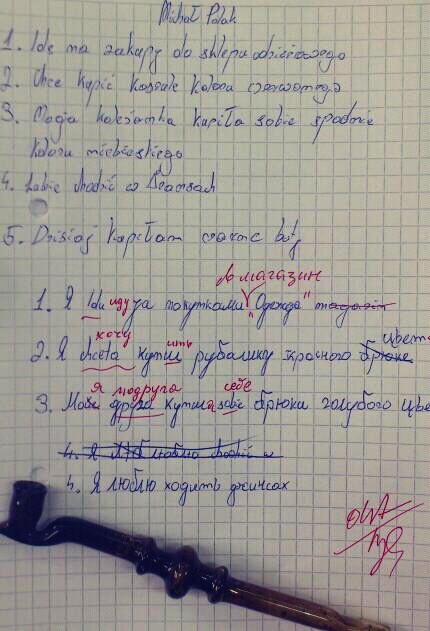 Michał Polak
1. Idę na zakupy do sklepu odzieżowego
2. Chce kupić koszule koloru czerwonego
3. Moja koleżanka kupiła sobie spodnie
koloru niebieskiego
4. Lubie chodzić w Jeansach
5. Dzisiaj kupiłam czarne buty
в магазин
1. Я Idu иду за покупками "Одежда" magazin
хочу ить цвета
2. Я chceta купил рубашку красного
я подруга себе
3. Моя друга купила sobie брюки голубого цве
4. Я люблю chodzić w
4. Я люблю ходить джинсах